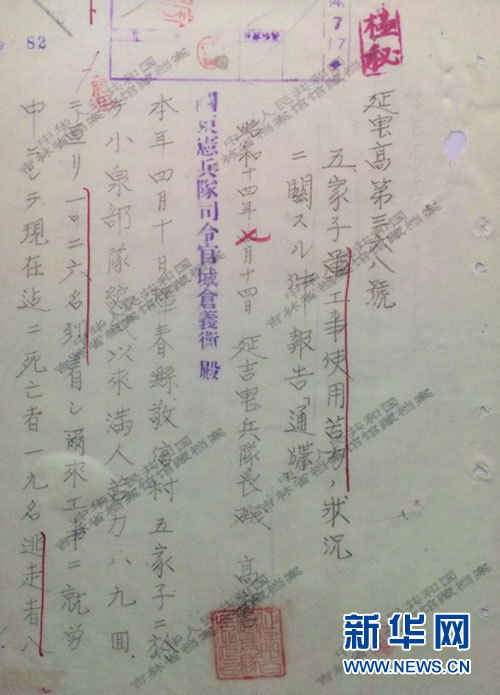 極秘
14.7.17
82
延憲高第三六八號
五家子道工事使用苦力ノ状況
ニ關スル件報告「通牒」
昭和十四年七月十四日 延吉憲兵隊長 磯 高麿
關東憲兵隊司令官城倉義衛 殿
本年四月十日琿春縣敬信村五家子ニ於
小泉部隊
以來満人苦力八九回
ニ亘リ一〇二六名到着シ爾來工事ニ就労
中ニシテ現在迠ニ死亡者一九名逃走者八
中华人民共和国
吉林省档案馆馆藏档案
新华网
WWW.NEWS.CN